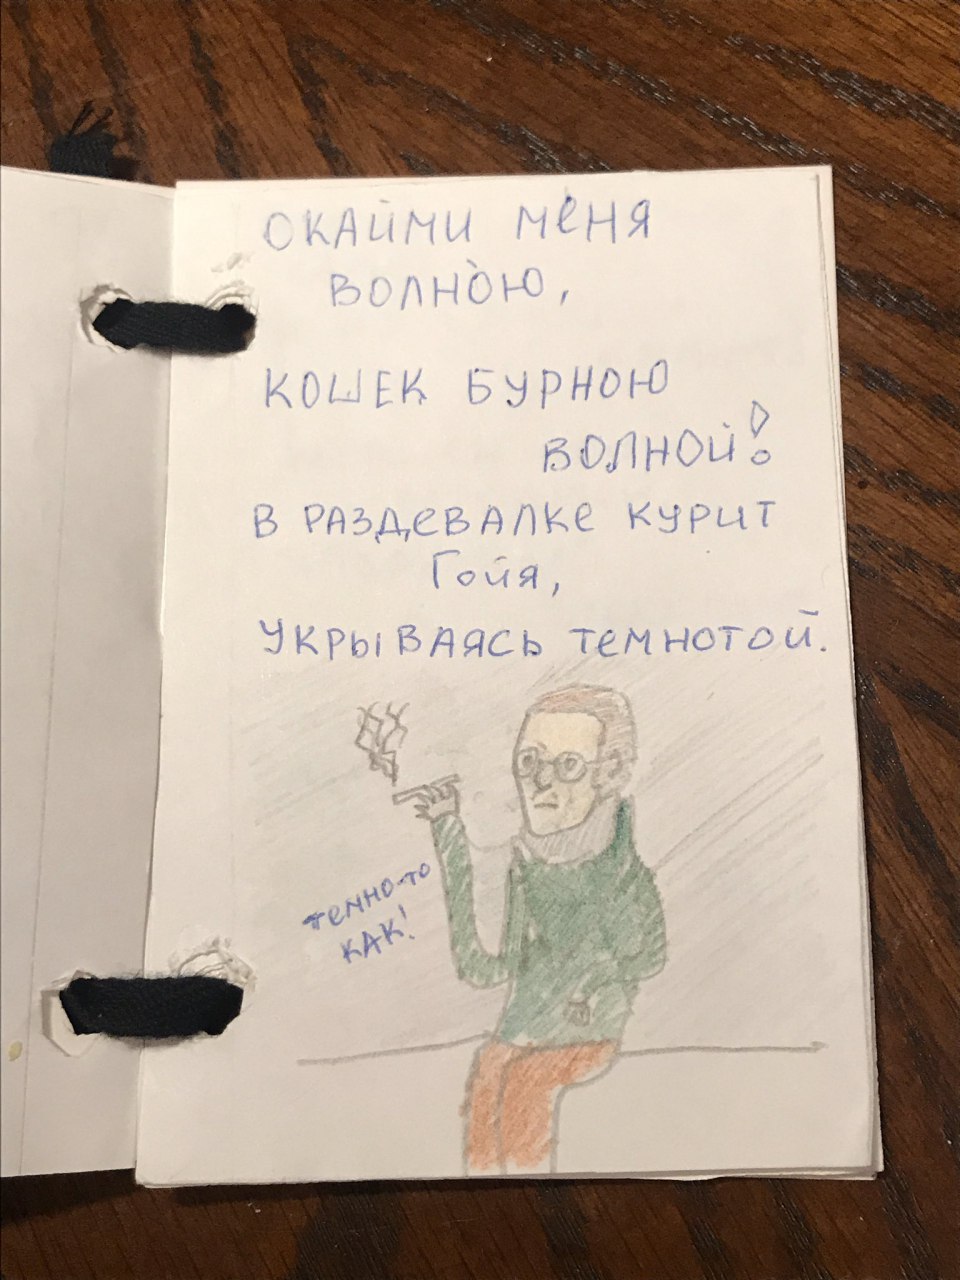 ОКАЙМИ МЕНЯ
ВОЛНО̀Ю,
КОШЕК БУРНОЮ
ВОЛНОЙ!
В РАЗДЕВАЛКЕ КУРИТ
Гойя,
УКРЫВАЯСЬ ТЕМНОТОЙ.
ТЕМНО-ТО
КАК!